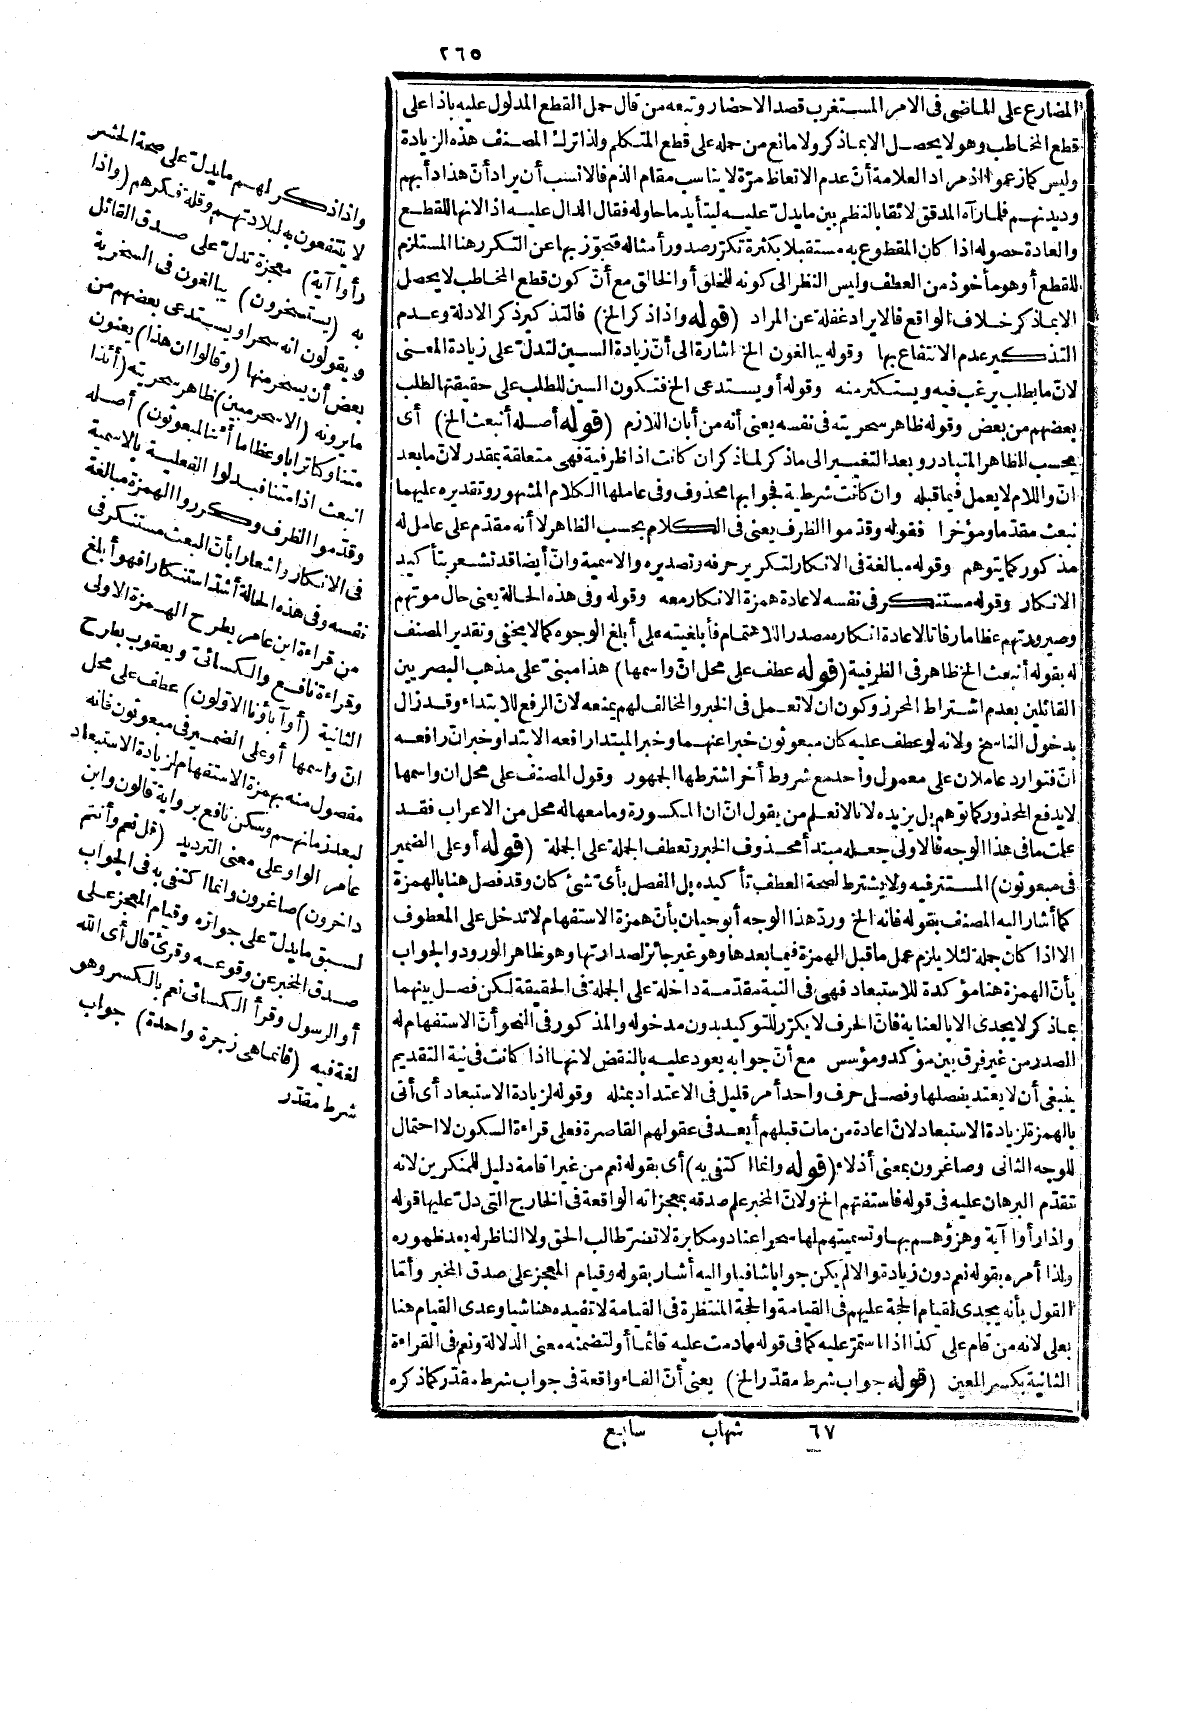 ٢٦٥
المضارع على الماضى فى الامر المستغرب قصد الاحضار وتبعه من قال حمل القطع المدلول عليه باذا على
قطع المخاطب وهو لا يحصل الا بماذكر ولا مانع من حمله على قطع المتكلم ولذا ترك المصنف هذه الزيادة
وليس كما زعموا اذ مراد العلامة أنّ عدم الاتعاظ مرّة لا يناسب مقام الذم فالانسب أن يراد أنّ هذا دأبهم
وديدنهم فلما رآه المدقق لائقا بالنظم بين ما يدل عليه ليتأيد ما حاوله فقال الدال عليه اذا لانها للقطع
والعادة حصوله اذا كان المقطوع به مستقبلا بكثرة تكرّر صدور أمثاله فتجوّز بها عن التكرر هنا المستلزم
للقطع أو هو مأخوذ من العطف وليس النظر الى كونه للخلق أو الخالق مع أنّ كون قطع المخاطب لا يحصل
الا بماذكر خلاف الواقع فالايراد غفلة عن المراد (قوله واذا ذكر الخ) فالتذكير ذكر الادلة وعدم
التذكير عدم الانتفاع بها وقوله يبالغون الخ اشارة الى أنّ زيادة السين لتدلّ على زيادة المعنى
لانّ ما يطلب يرغب فيه ويستكثر منه وقوله أو يستدعى الخ فتكون السين للطلب على حقيقتها لطلب
بعضهم من بعض وقوله ظاهر سحريته فى نفسه يعنى أنه من أبان اللازم (قوله أصله أنبعث الخ) أى
بحسب الظاهر المتبادر وبعد التغيير الى ماذكر لماذكر ان كانت اذا ظرفية فهى متعلقة بمقدر لانّ ما بعد
انّ واللام لا يعمل فيما قبله وان كانت شرطية فجوابها محذوف وفى عاملها الكلام المشهور وتقديره عليهما
نبعث مقدّما ومؤخرا فقوله وقدّموا الظرف يعنى فى الكلام بحسب الظاهر لا أنه مقدّم على عامل له
مذكور كما يتوهم وقوله مبالغة فى الانكار لتكرير حرفه وتصديره والاسمية وانّ أيضا قد تشعر بتأكيد
الانكار وقوله مستنكر فى نفسه لاعادة همزة الانكار معه وقوله وفى هذه الحالة يعنى حال موتهم
وصيرورتهم عظاما رفاتا لاعادة انكار به مصدر اللاهتمام فأبلغيته على أبلغ الوجوه كما لا يخفى وتقدير المصنف
له بقوله أنبعث الخ ظاهر فى الظرفية (قوله عطف على محل انّ واسمها) هذا مبنىّ على مذهب البصريين
القائلين بعدم اشتراط المحرز وكون ان لا تعمل فى الخبر والمخالف لهم يمنعه لانّ الرفع للابتداء وقد زال
بدخول الناسخ ولانه لو عطف عليه كان مبعوثون خبرا عنهما وخبر المبتدا رافعه الابتدا وخبر انّ رافعه
انّ فتوارد عاملان على معمول واحد مع شروط أخر اشترطها الجمهور وقول المصنف على محل ان واسمها
لا يدفع المحذور كما توهم بل يزيده لانا لا نعلم من يقول انّ انّ المكسورة وما معها له محل من الاعراب فقد
علمت ما فى هذا الوجه فالاولى جعله مبتدأ محذوف الخبر وتعطف الجملة على الجملة (قوله أو على الضمير
فى مبعوثون) المستتر فيه ولا يشترط لصحة العطف تأكيده بل الفصل بأىّ شئ كان وقد فصل هنا بالهمزة
كما أشار اليه المصنف بقوله فانه الخ وردّ هذا الوجه أبو حيان بأنّ همزة الاستفهام لا تدخل على المعطوف
الا اذا كان جملة لئلا يلزم عمل ما قبل الهمزة فيما بعدها وهو غير جائز لصدارتها وهو ظاهر الورود والجواب
بأنّ الهمزة هنا مؤكدة للاستبعاد فهى فى النية مقدّمة داخلة على الجملة فى الحقيقة لكن فصل بينهما
بماذكر لا يجدى الا بالعناية فانّ الحرف لا يكرّر للتوكيد بدون مدخوله والمذكور فى النحو أنّ الاستفهام له
الصدر من غير فرق بين مؤكد ومؤسس مع أنّ جوابه يعود عليه بالنقض لانها اذا كانت فى نية التقديم
ينبغى أن لا يعتد بفصلها وفصل حرف واحد أمر قليل فى الاعتداد بمثله وقوله لزيادة الاستبعاد أى أتى
بالهمزة لزيادة الاستبعاد لانّ اعادة من مات قبلهم أبعد فى عقولهم القاصرة فعلى قراءة السكون لا احتمال
للوجه الثانى وصاغرون بمعنى أذلاء (قوله وانما اكتفى به) أى بقوله نعم من غير اقامة دليل للمنكرين لانه
تقدّم البرهان عليه فى قوله فاستفتهم الخ ولانّ المخبر علم صدقه بمعجزاته الواقعة فى الخارج التى دلّ عليها قوله
واذا رأوا آية وهزؤهم بها وتسميتهم لها سحرا عناد ومكابرة لا تضرّ طالب الحق ولا الناظر له بعد ظهوره
ولذا أمره بقوله نعم دون زيادة والا لم يكن جوابا شافيا واليه أشار بقوله وقيام المعجز على صدق المخبر وأمّا
القول بأنه يجدى لقيام الحجة عليهم فى القيامة والحجة المنتظرة فى القيامة لا تفيده هنا شيأ وعدى القيام هنا
بعلى لانه من قام على كذا اذا استمرّ عليه كما فى قوله مادمت عليه قائما أو لتضمنه معنى الدلالة ونعم فى القراءة
الثانية بكسر العين (قوله جواب شرط مقدّر الخ) يعنى أنّ الفاء واقعة فى جواب شرط مقدّر كما ذكره
واذا ذكر لهم ما يدلّ على صحة الحشر
لا ينتفعون به لبلادتهم وقلة فكرهم (واذا
رأوا آية) معجزة تدلّ على صدق القائل
به (يستسخرون) يبالغون فى السخرية
ويقولون انه سحر أو يستدعى بعضهم من
بعض أن يسخر منها (وقالوا ان هذا) يعنون
ما يرونه (الا سحر مبين) ظاهر سحريته (أئذا
متنا وكنا ترابا وعظاما أئنا لمبعوثون) أصله
انبعث اذا متنا فبدلوا الفعلية بالاسمية
وقدّموا الظرف وكرروا الهمزة مبالغة
فى الانكار واشعارا بأنّ البعث مستنكر فى
نفسه وفى هذه الحالة أشدّ استنكارا فهو أبلغ
من قراءة ابن عامر بطرح الهمزة الاولى
وقراءة نافع والكسائى ويعقوب بطرح
الثانية (أو آباؤنا الاوّلون) عطف على محل
انّ واسمها أو على الضمير فى مبعوثون فانه
مفصول منه بهمزة الاستفهام لزيادة الاستبعاد
لبعد زمانهم وسكن نافع برواية قالون وابن
عامر الواو على معنى الترديد (قل نعم وأنتم
داخرون) صاغرون وانما اكتفى به فى الجواب
لسبق ما يدلّ على جوازه وقيام المعجز على
صدق المخبر عن وقوعه وقرئ قال أى الله
أو الرسول وقرأ الكسائى نعم بالكسر وهو
لغة فيه (فانما هى زجرة واحدة) جواب
شرط مقدّر
٦٧ شهاب سابع